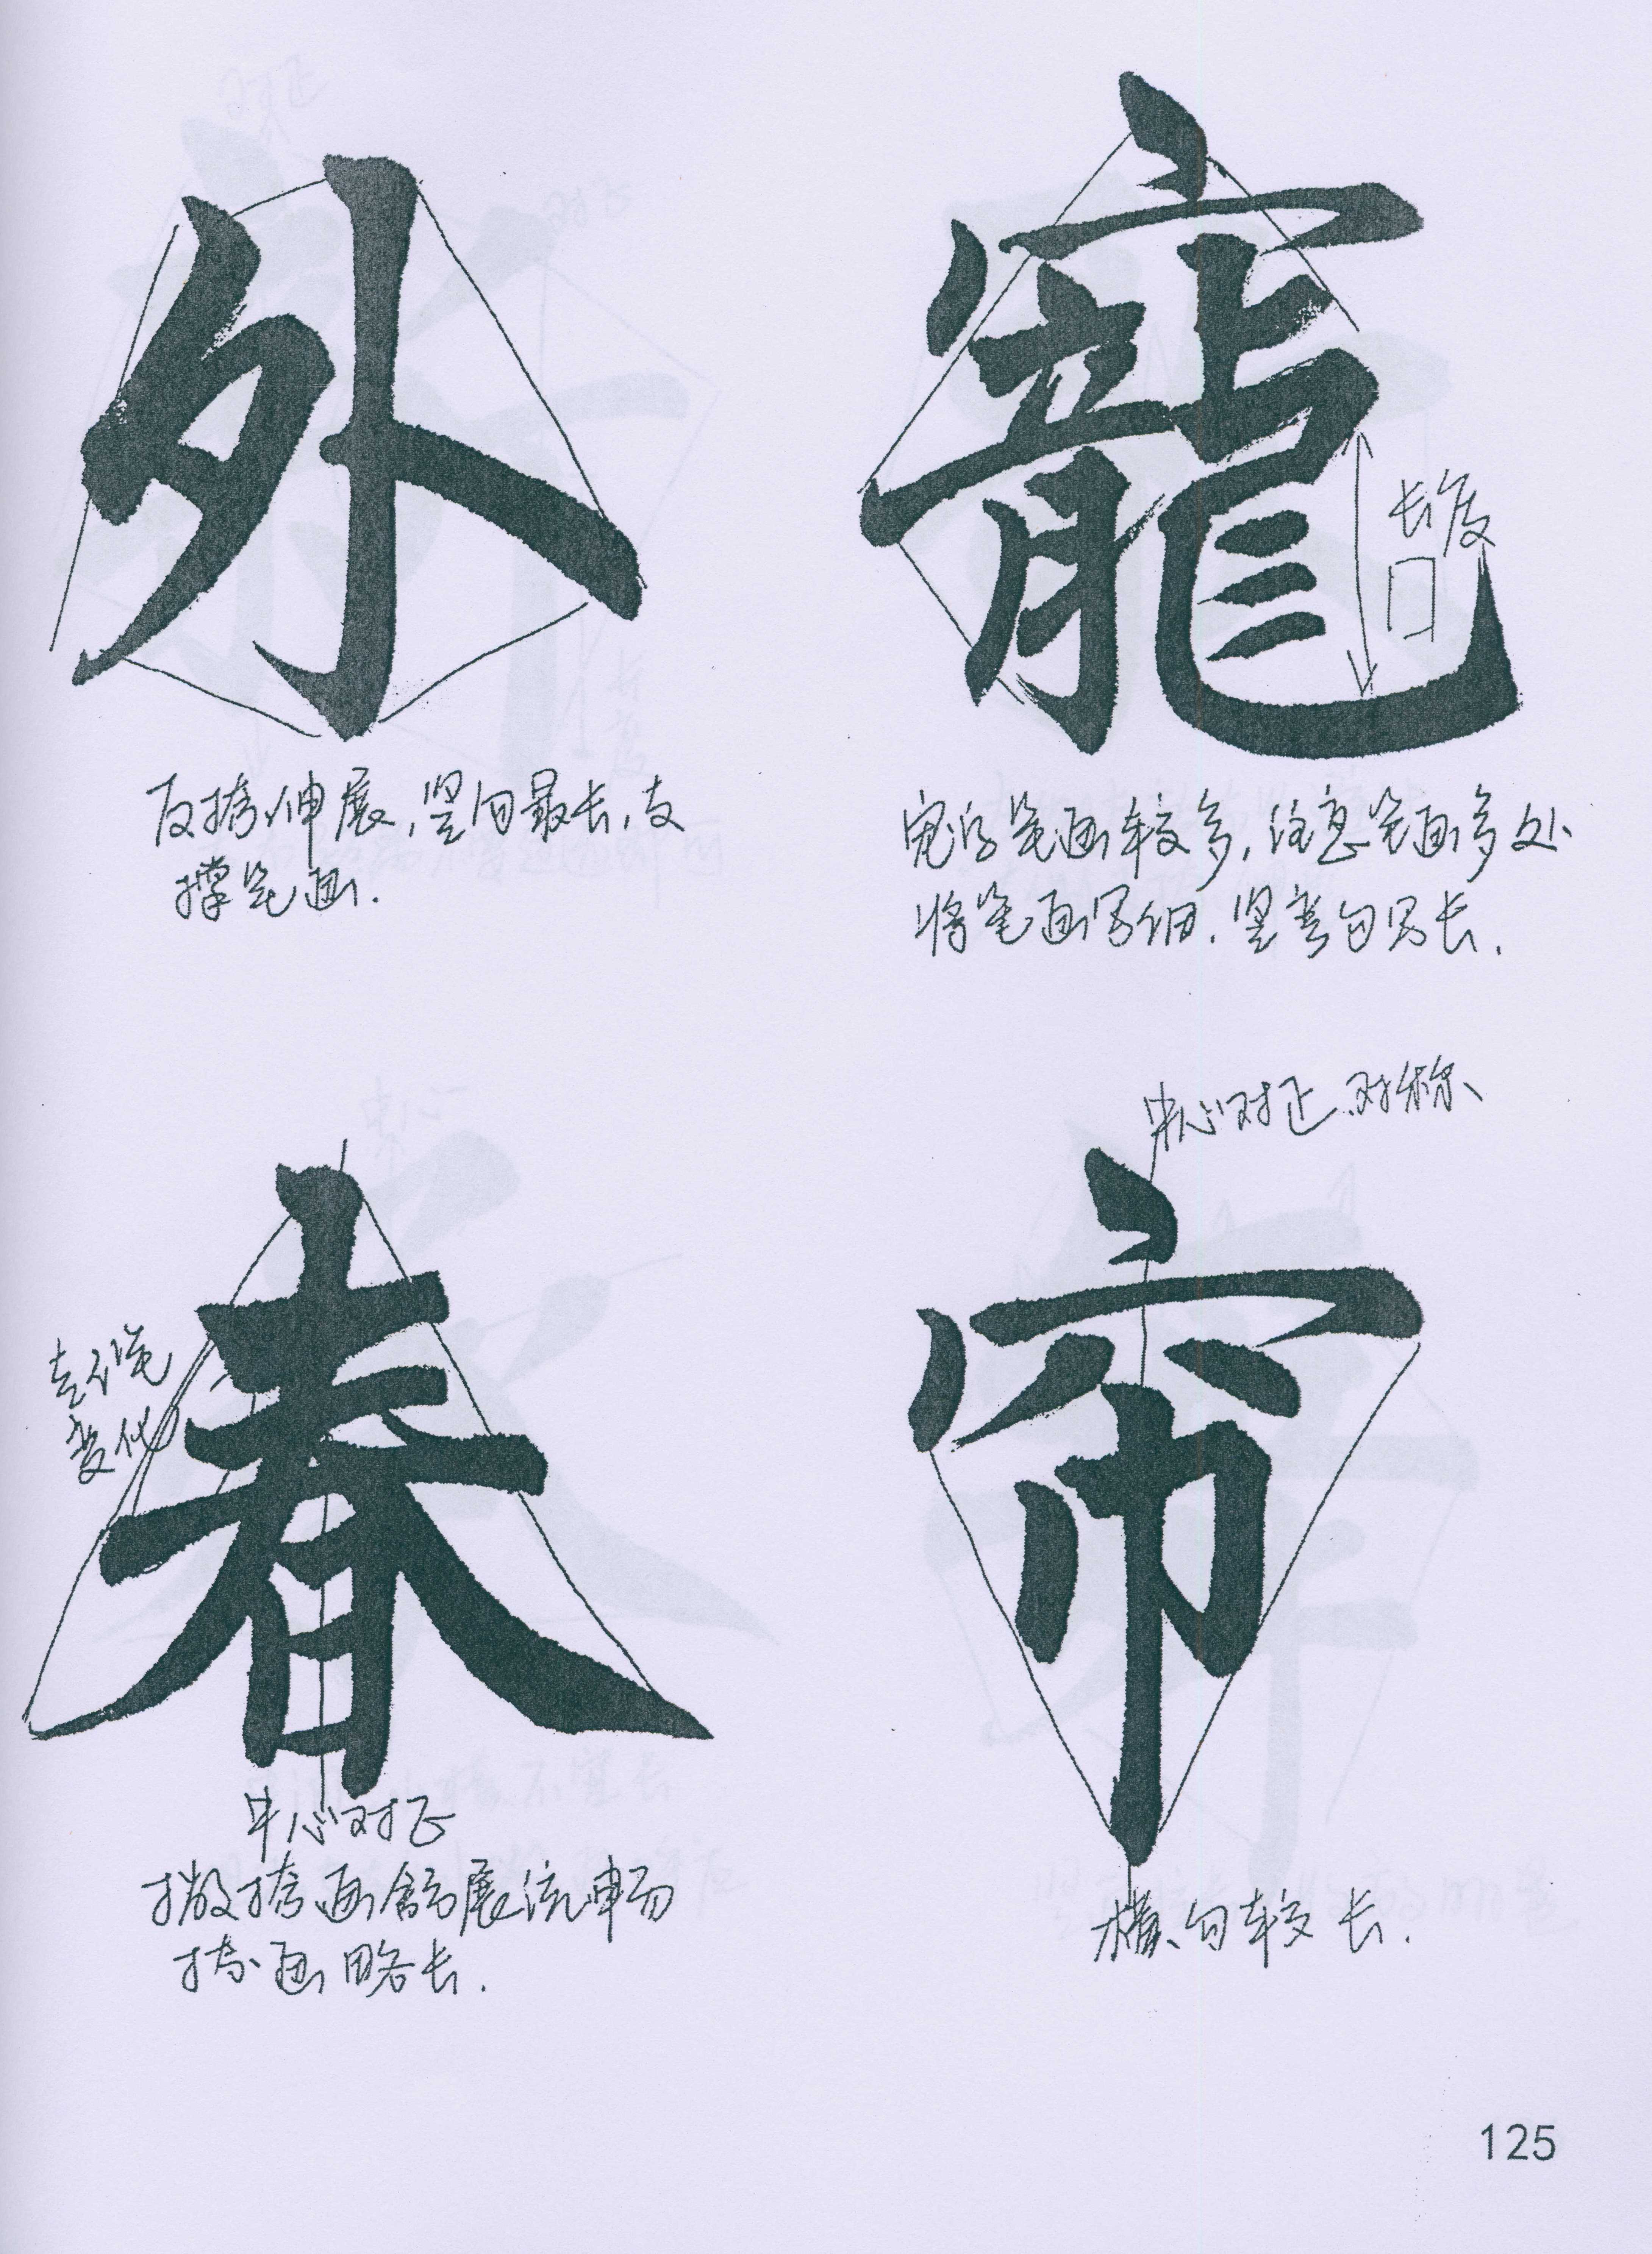 外
反捺伸展,竖向最长,支
撑笔画.
寵
长度
宠字笔画较多,注意笔画多处
将笔画写细.竖弯勾见长.
春
变化
中心对正
撇捺画舒展流畅
捺画略长.
中心对正.对称
帘
横勾较长.
125